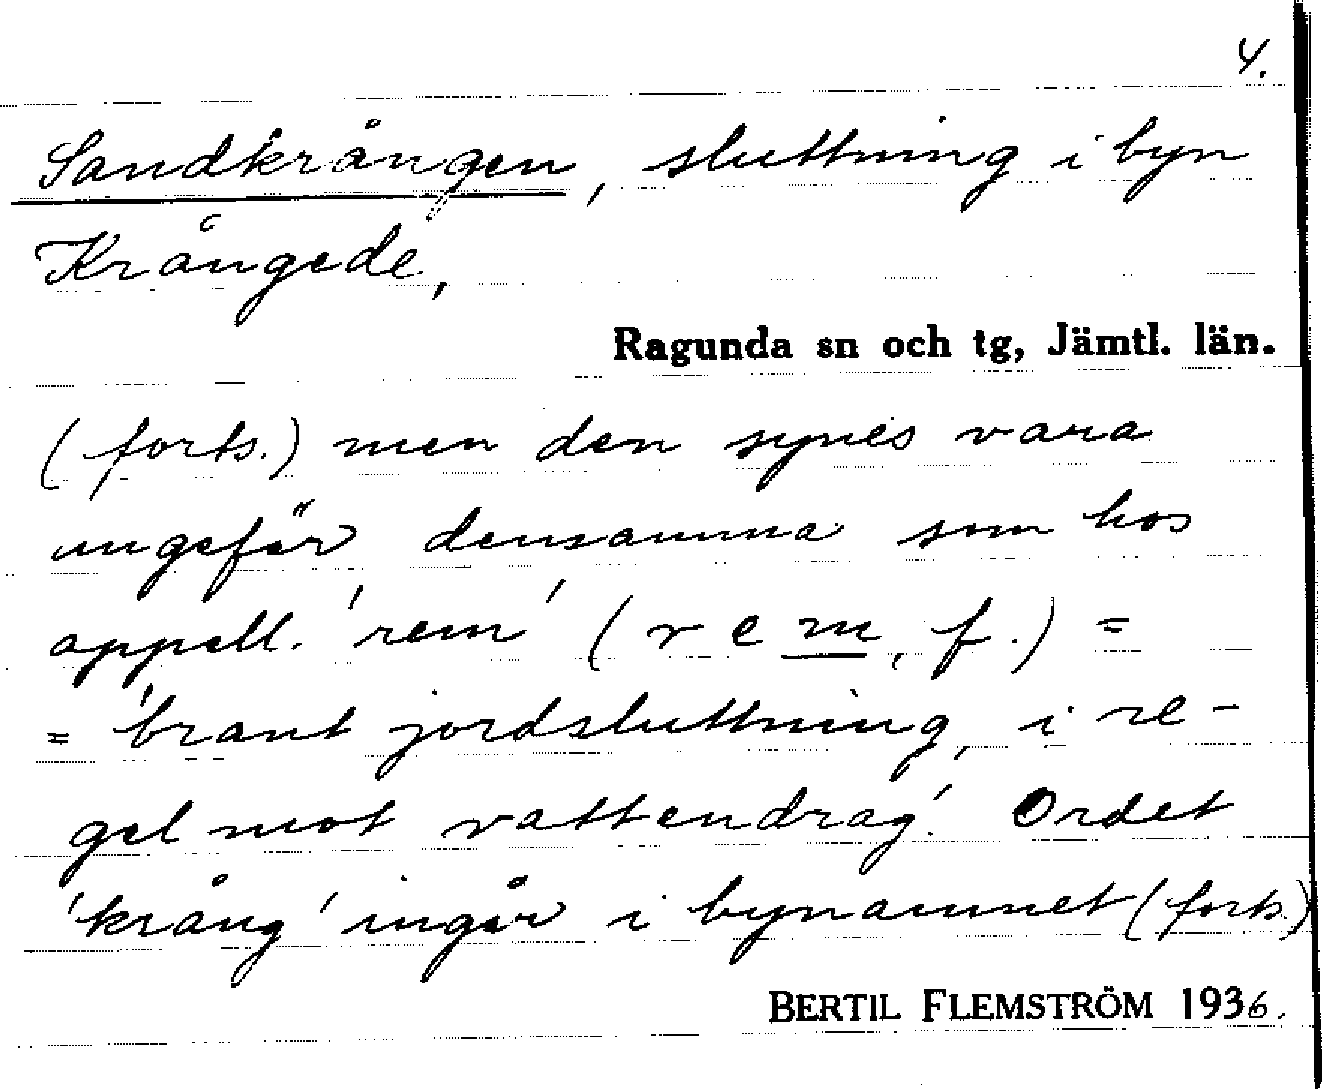 4.
Sandkrången, sluttning i byn
Krångede,
Ragunda sn och tg, Jämtl. län.
(forts.) men den synes vara
ungefär densamma som hos
appell. 'rem' (rem, f.) =
= 'brant jordsluttning, i re-
gel mot vattendrag'. Ordet
'krång' ingår i bynamnet (forts.)
BERTIL FLEMSTRÖM 1936.